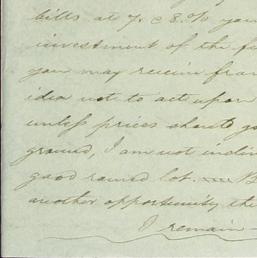 bills at 7. @ 8.% you
investment of the fu
you may receive fra
idea not to act upon
unless prices should go
ground, I am not incli
good round lot. — B
another opportunity the
I remain